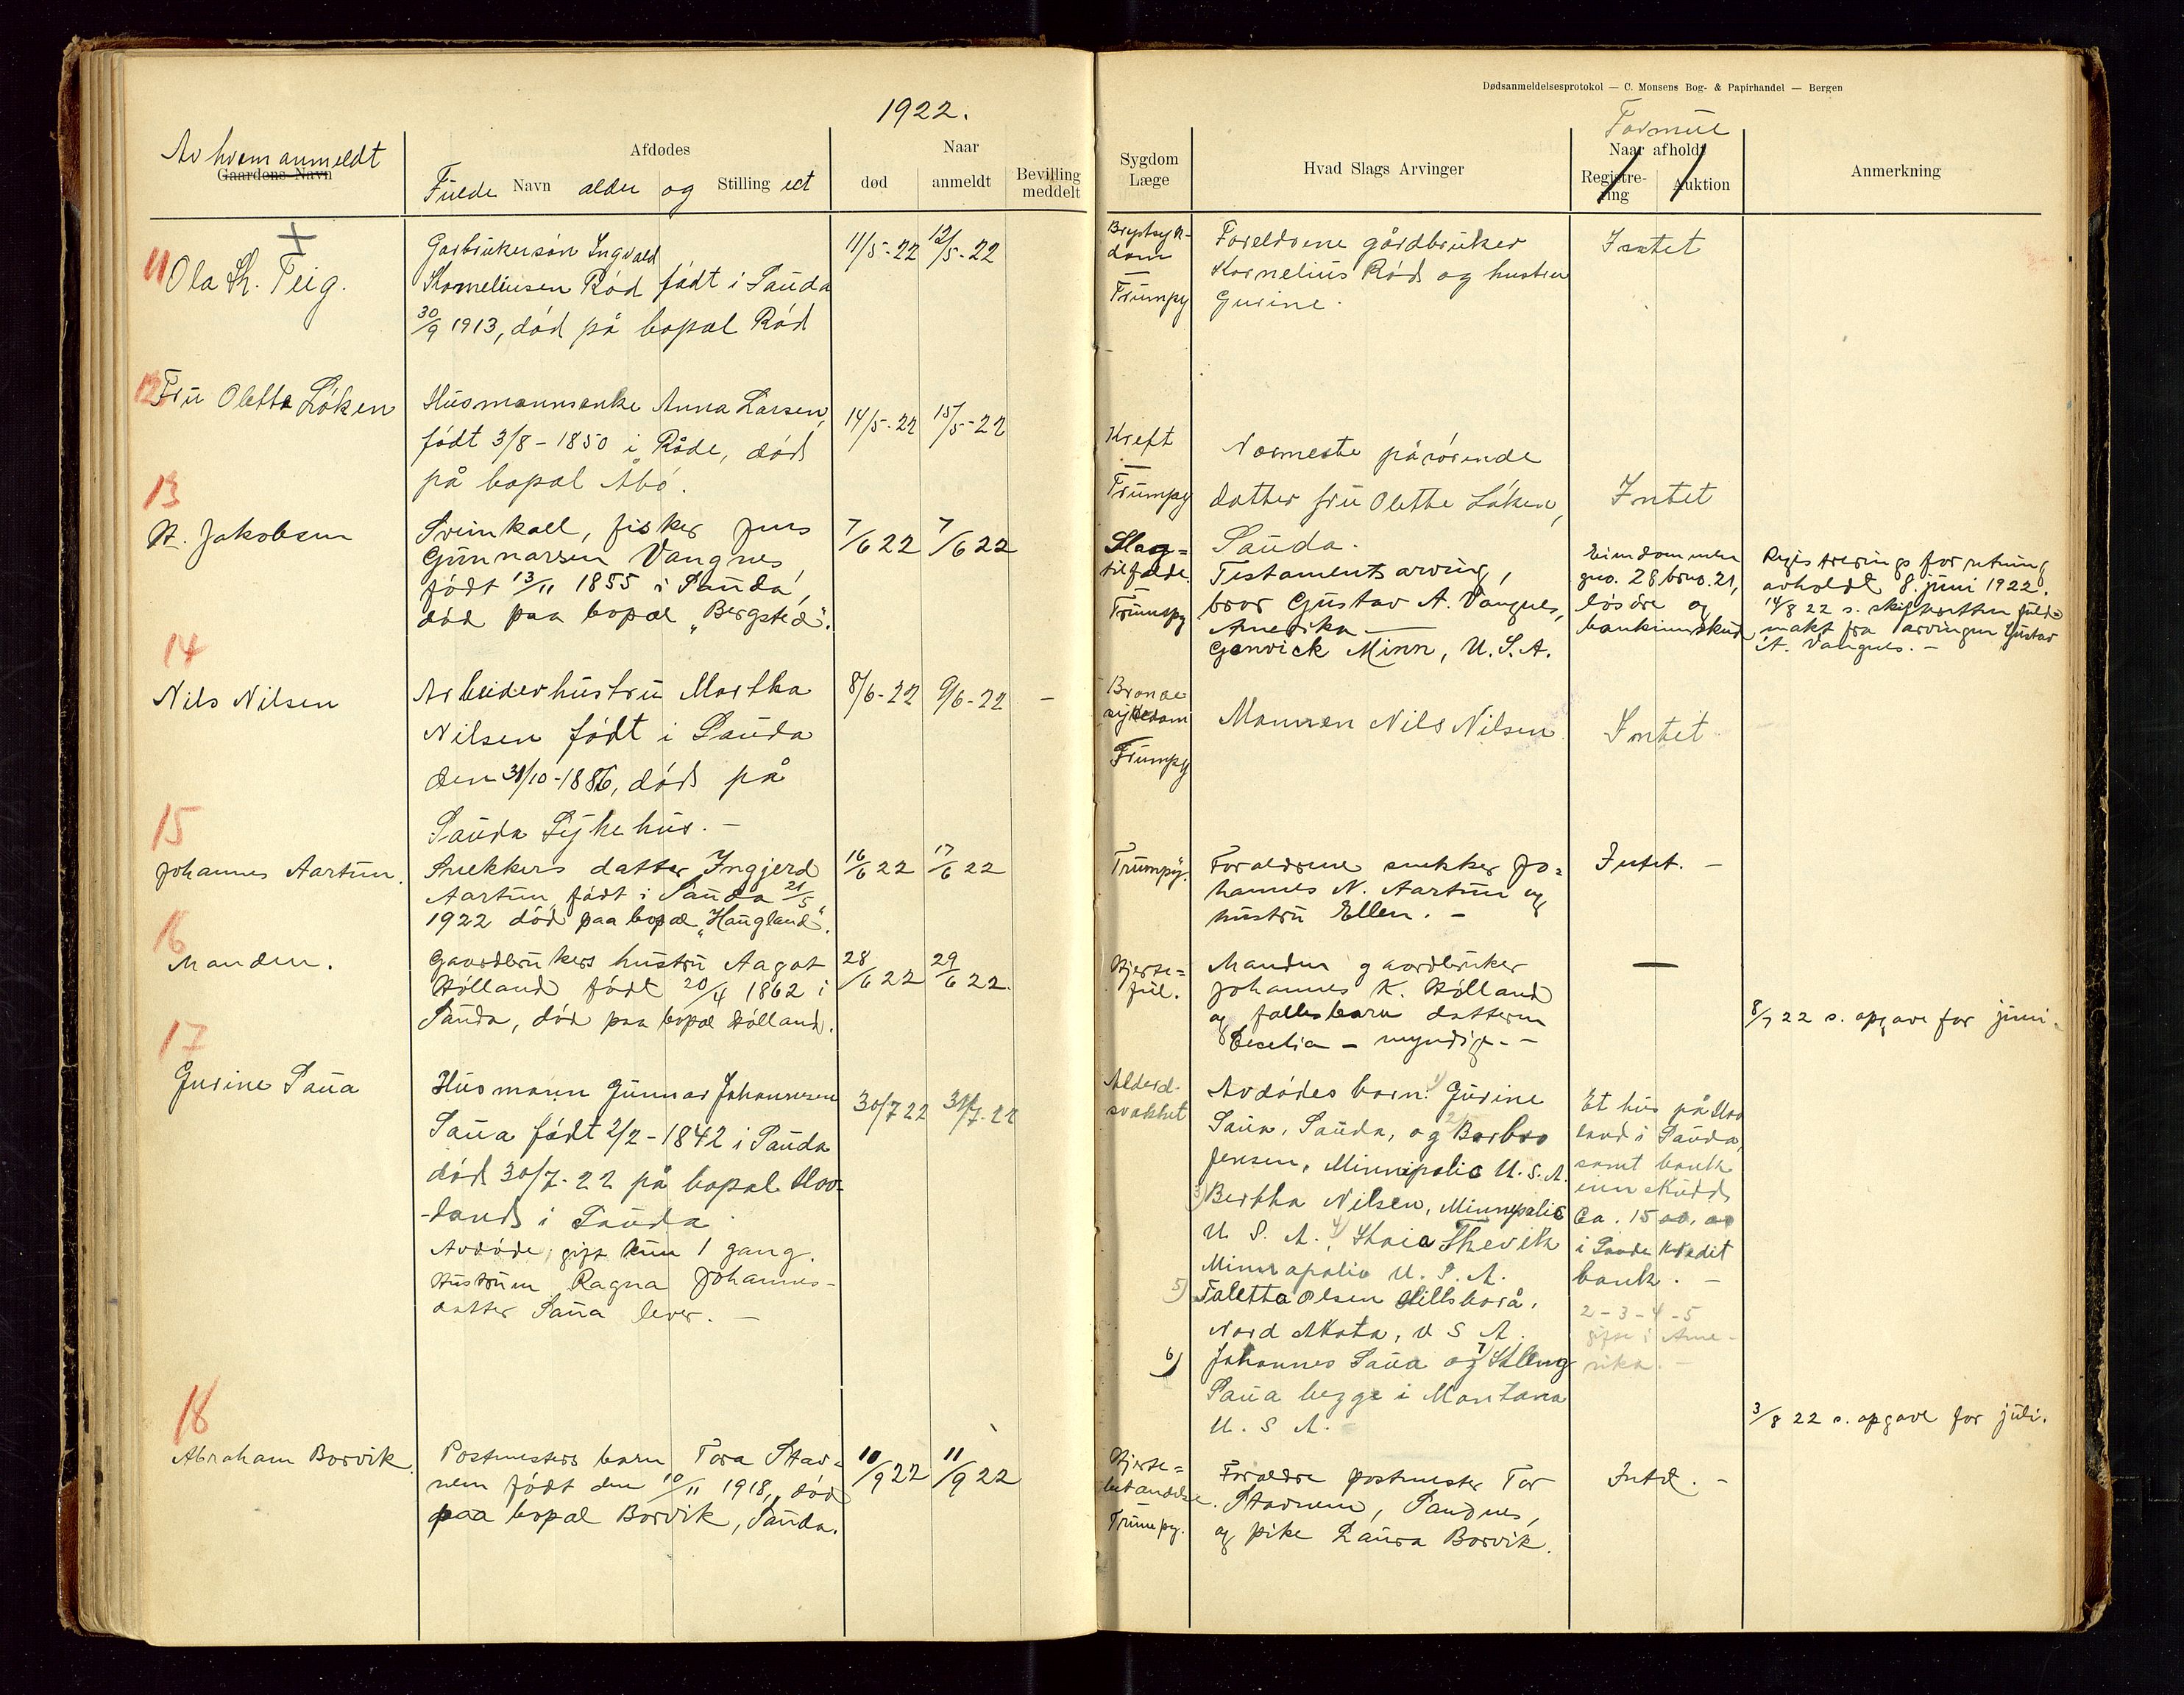 1922.
Av hvem anmeldt
Gaardens Navn
Afdødes
Fulde Navn alder og Stilling
Naar
død
anmeldt
Bevilling meddelt
11
Ola Sh. Teig.
Garbrukersøn Ingvald
Korneliusen Rød født i Sauda
30/9 1913, død på bopæl Rød
11/5-22 12/5-22
12
Fru Oletta Løken
Husmannsenke Anna Larsen,
født 3/8-1850 i Råde, død
på bopæl Åbø.
14/5-22 15/5-22
13
St. Jakobsen
Sveinkall, fisker Jens
Gunnarsen Vangnes
født 13/11 1855 i Sauda,
død paa bopæl "Bergsted".
7/6 22 7/6 22
14
Nils Nilsen
Arbeiderhustru Martha
Nilsen født i Sauda
den 31/10-1886, død på
Sauda Sykehus. -
8/6-22 9/6-22 -
15
Johannes Aartun.
Snekkers datter Ingjerd
Aartun, født i Sauda 21/5
1922 død paa bopæl "Haugland".
16/6 22 17/6 22
16
Manden.
Gaardbrukers hustru Aagot
Hølland født 20/4 1862 i
Sauda, død paa bopæl Hølland.
28/6 22 29/6 22.
17
Gurine Saua
Husmann Gunnar Johannesen
Saua født 2/2-1842 i Sauda
død 30/7-22 på bopæl Hov-
-land i Sauda
Avdøde, gift kun 1 gang.
Hustruen Ragna Johannes-
datter Saua lever. -
30/7 22 31/7-22
18
Abraham Borvik.
Postmesters barn Tora Stav-
nem født den 10/11 1918, død
paa bopæl Borvik, Sauda.
10/9 22 11/9 22
Dødsanmeldelsesprotokol — C. Monsens Bog- & Papirhandel — Bergen
Sygdom
Læge
Hvad Slags Arvinger
Formue
Naar afholdt
Registre-
ring
Auktion
Anmerkning
Brystsyk-
dom
—
Trumpy
Foreldrene gårdbruker
Kornelius Rød og hustru
Gurine.
Intet
Kreft
—
Trumpy
Nærmeste pårørende
datter fru Olette Løken,
Sauda.
Intet
Slag=
tilfelde
—
Trumpy
Testamentsarving,
bror Gustav A. Vangnes,
Amerika
Genvick Minn, U.S.A.
Eiendommen
gno. 28 brno. 21,
løsøre og
bankinnskud
Registreringsforretning
avholdt 8. juni 1922.
14/8 22 s. skifteretten fuld=
makt fra arvingen Gustav
A. Vangnes. -
sykdom
Trumpy
Mannen Nils Nilsen
Intet
Trumpy.
Foreldrene snekker Jo=
hannes N. Aartun og
hustru Ellen. -
Intet. -
Hjerte=
feil.
Manden gaardbruker
Johannes K. Hølland
og fællesbarn datteren
Cecelia - myndig. -
—
8/7 22 s. opgave for juni.
Alderd.
svakhet
Avdødes barn: 1) Gurine
Saua, Sauda, og 2) Barbro
Jensen, Minnipolis U.S.A.
3) Bertha Nilsen, Minnepolis
U. S. A. 4)
Minnapolis U. S. A.
5) Taletta Olsen Hillsborå,
Nord Akota, U S A.
6) Johannes Saua og 7)
Saua begge i Montana
U. S A.
Et hus på Hov
land i Sauda,
samt bank
innskudd
Ca. 1500.00
i Sauda Kredit
bank. -
2-3-4-5
gift i Ame-
rika. -
3/8 22 s. opgave for juli.
Hjerte=
betændelse.
Trumpy.
Forældre postmester Tor
Stavnem, Sandnes,
og pike Laura Borvik.
Intet. -